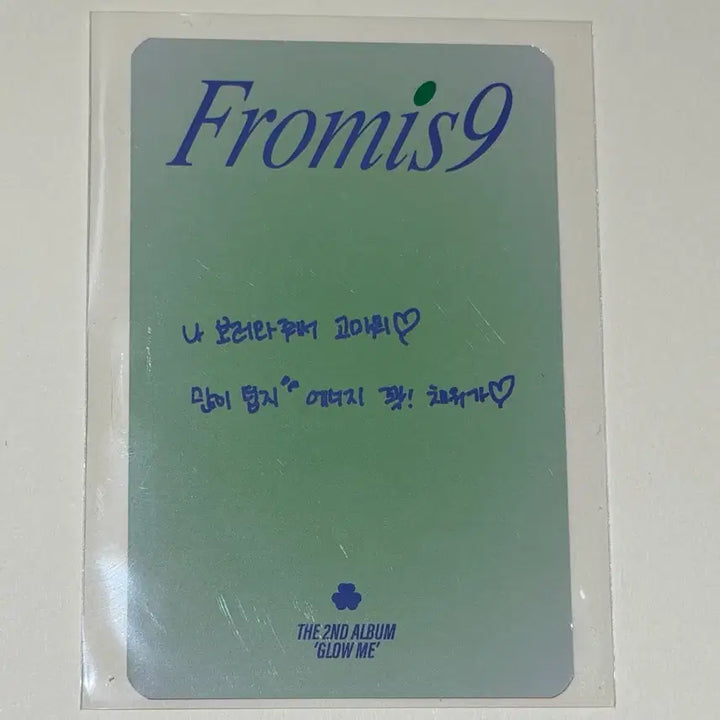 Fromis9
나 보러와줘서 고마워♡
많이 덥지 에너지 꽉! 채워가♡
THE 2ND ALBUM
'GLOW ME'